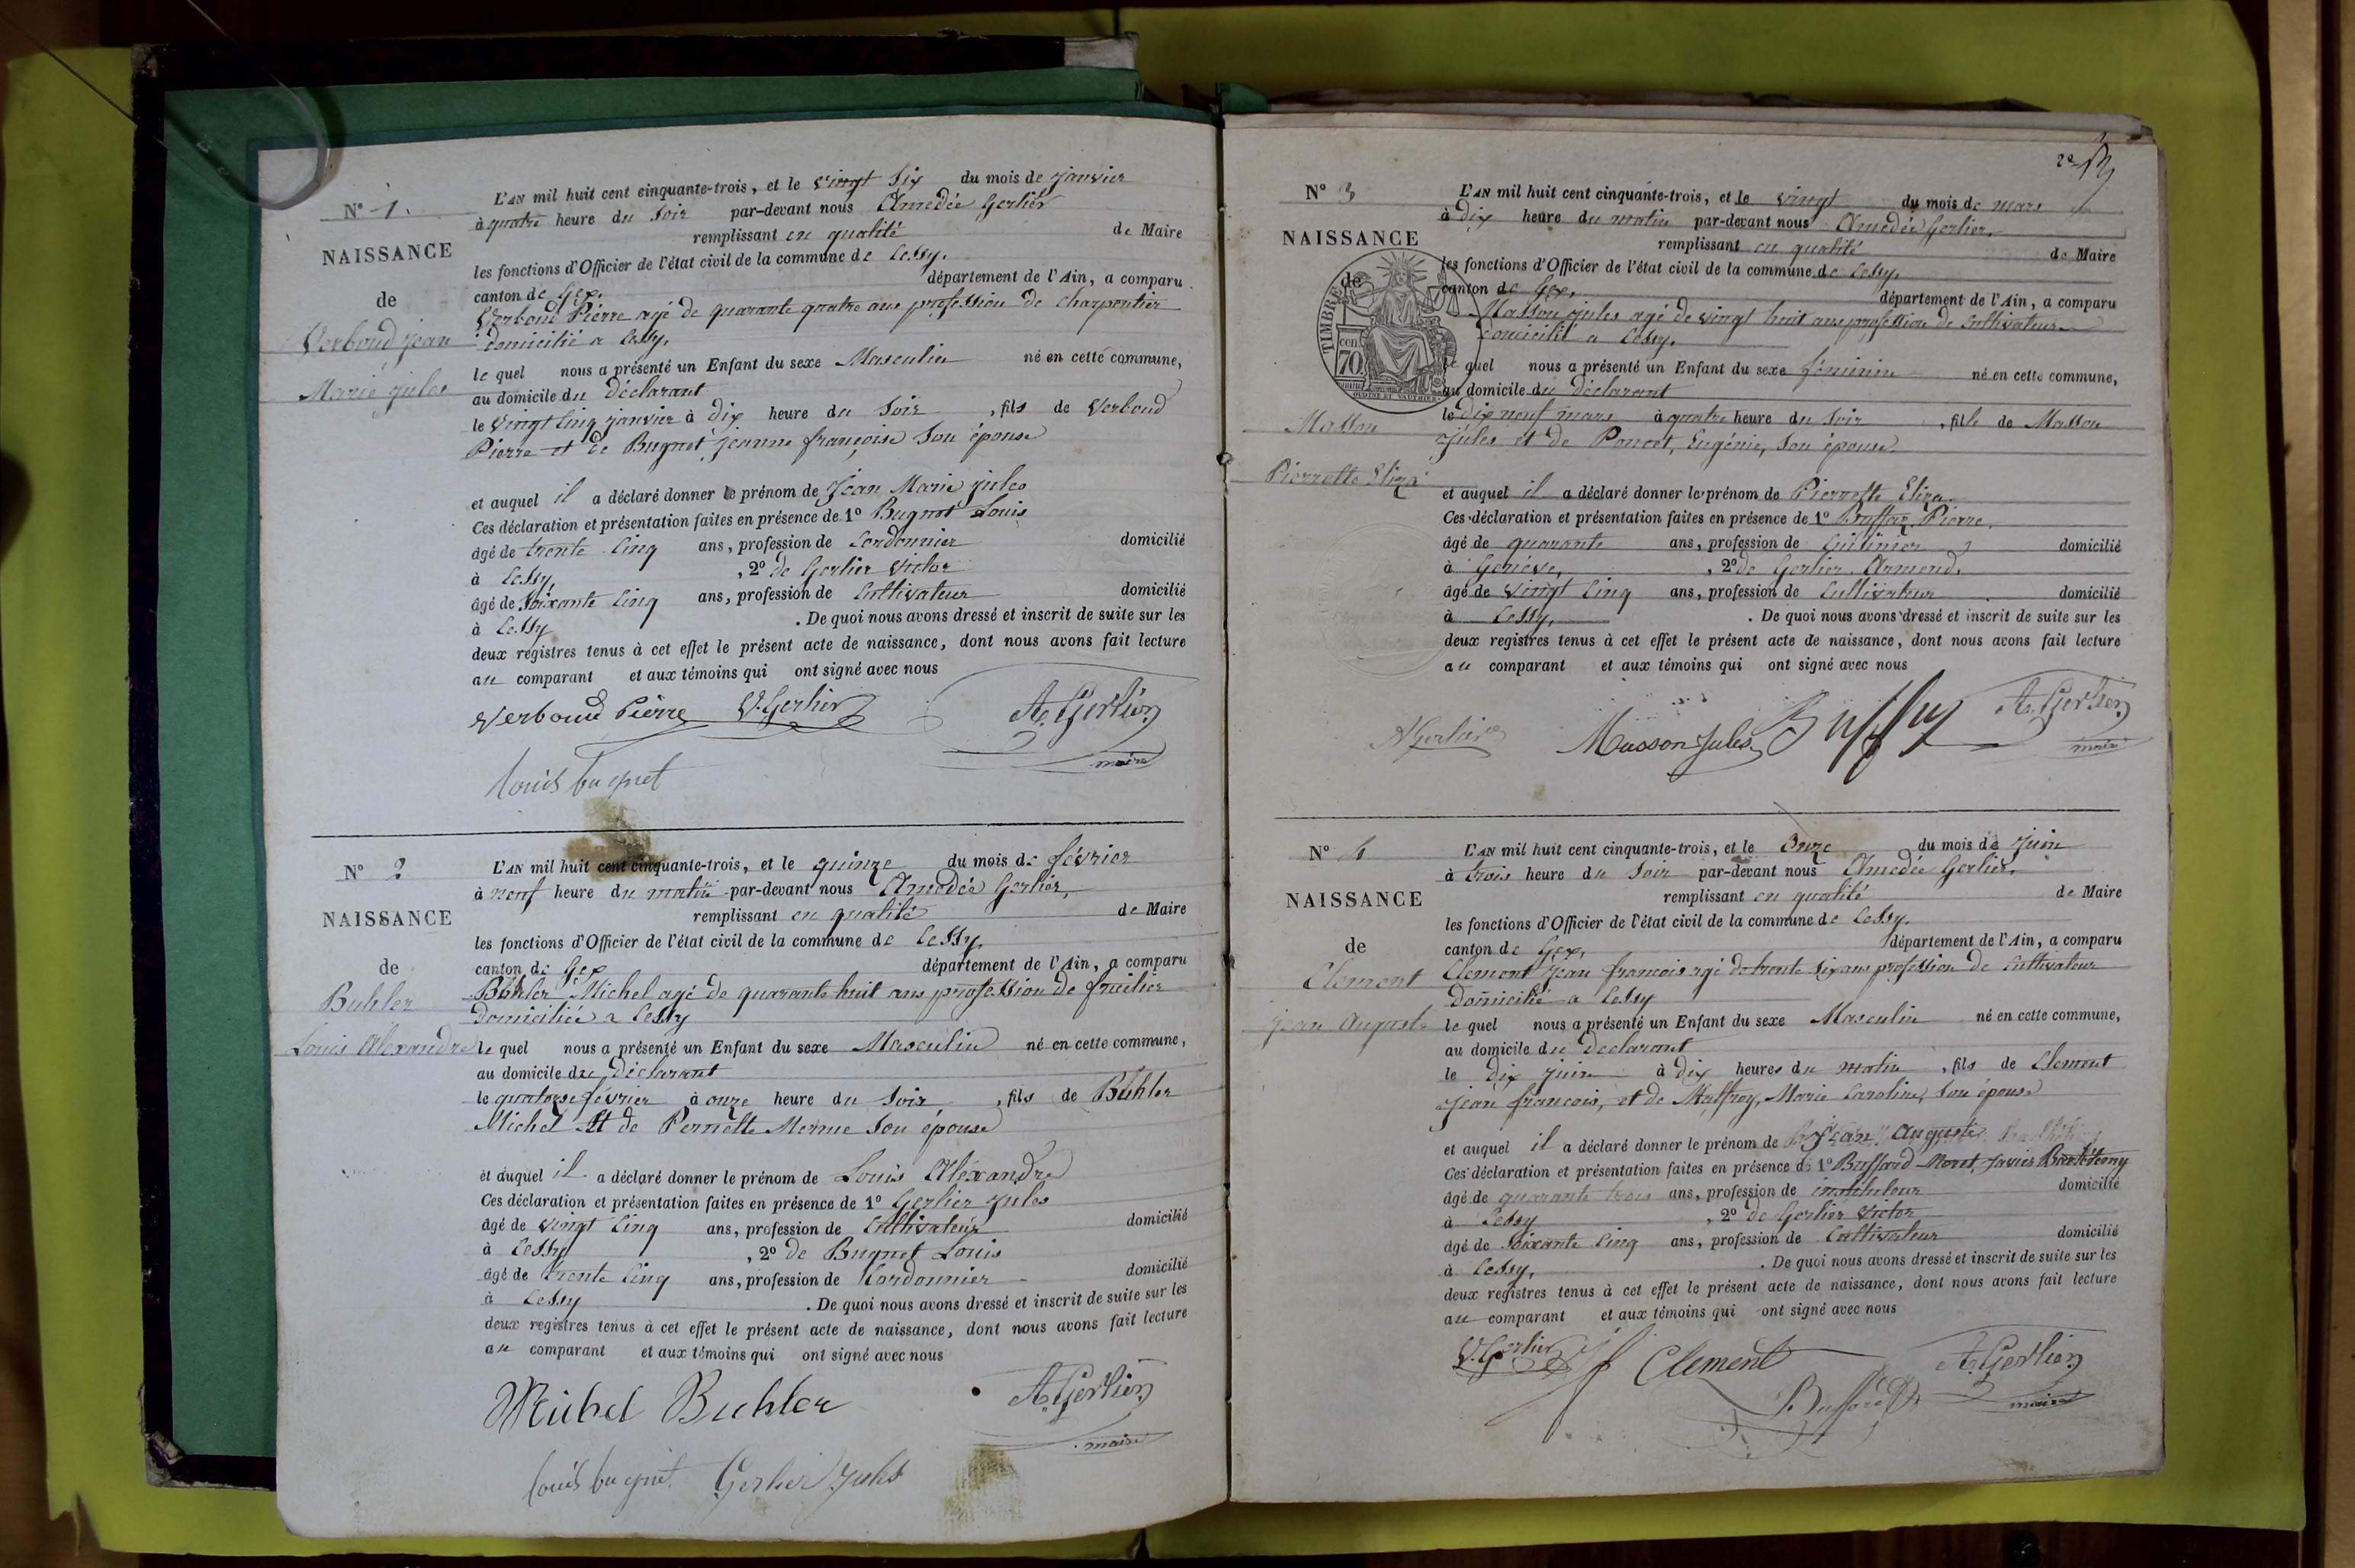 N° 1.
NAISSANCE
de
Verboud jean
Marie jules
L'AN mil huit cent cinquante-trois, et le vingt Six du mois de janvier
à quatre heure du Soir par-devant nous Amedée Gerlier
remplissant en qualité de Maire
les fonctions d'Officier de l'état civil de la commune de Cessy.
canton de Gex, département de l'Ain, a comparu
Verboud Pierre agé de quarante quatre ans profession de charpentier
domicilié a Cessy,
le quel nous a présenté un Enfant du sexe Masculin né en cette commune,
au domicile du déclarant
le Vingt Cinq janvier à dix heure du Soir, fils de Verboud
Pierre et de Bugnet, jeanne françoise Son épouse
et auquel il a déclaré donner le prénom de Jean Marie jules
Ces déclaration et présentation faites en présence de 1° Bugnet Louis
âgé de trente Cinq ans, profession de Cordonnier domicilié
à Cessy, , 2° de Gerlier Victor
âgé de Soixante Cinq ans, profession de Cultivateur domicilié
à Cessy . De quoi nous avons dressé et inscrit de suite sur les
deux registres tenus à cet effet le présent acte de naissance, dont nous avons fait lecture
au comparant et aux témoins qui ont signé avec nous
Verboud Pierre V. Gerlier A. Gerlier
maire
Louis bugnet
N° 2
NAISSANCE
de
Buhler
Louis Alexandre
L'AN mil huit cent cinquante-trois, et le quinze du mois de février
à neuf heure du matin par-devant nous Amedée Gerlier,
remplissant en qualité de Maire
les fonctions d'Officier de l'état civil de la commune de Cessy.
canton de Gex département de l'Ain, a comparu
Buhler Michel agé de quarante huit ans profession de
domiciliée a Cessy
le quel nous a présenté un Enfant du sexe Masculin né en cette commune,
au domicile du déclarant
le quatorze février à onze heure du Soir, , fils de Buhler
Michel Et de Pernette Merme Son épouse
et auquel il a déclaré donner le prénom de Louis Aléxandre
Ces déclaration et présentation faites en présence de 1° Gerlier jules
âgé de vingt Cinq ans, profession de Cultivateur domicilié
à Cessy , 2° de Bugnet Louis
âgé de trente Cinq ans, profession de Cordonnier domicilié
à Cessy . De quoi nous avons dressé et inscrit de suite sur les
deux registres tenus à cet effet le présent acte de naissance, dont nous avons fait lecture
au comparant et aux témoins qui ont signé avec nous
Michel Buhler A. Gerlier
maire
Louis bugnet. Gerlier Jules
N° 3
NAISSANCE
de
TIMBRE
cen. 70
Masson
Pierrette Eliza
L'AN mil huit cent cinquante-trois, et le vingt du mois de mars
à Dix heure du matin par-devant nous Amedée Gerlier,
remplissant en qualité de Maire
les fonctions d'Officier de l'état civil de la commune de Cessy,
canton de Gex, département de l'Ain, a comparu
Masson jules agé de vingt huit ans profession de Cultivateur
domicilié a Cessy.
le quel nous a présenté un Enfant du sexe féminin né en cette commune,
au domicile du déclarant
le dix neuf mars à quatre heure du Soir , fille de Masson
Jules et de Poncet, Eugénie, Son épouse.
et auquel il a déclaré donner le prénom de Pierrette Eliza.
Ces déclaration et présentation faites en présence de 1° Pierre.
âgé de quarante ans, profession de domicilié
à Genève, , 2° de Gerlier Armand,
âgé de Vingt Cinq ans, profession de Cultivateur domicilié
à Cessy, . De quoi nous avons dressé et inscrit de suite sur les
deux registres tenus à cet effet le présent acte de naissance, dont nous avons fait lecture
au comparant et aux témoins qui ont signé avec nous
A Gerlier Masson Jules A. Gerlier
maire
N° 4
NAISSANCE
de
Clement
jean Auguste
L'AN mil huit cent cinquante-trois, et le Onze du mois de juin
à trois heure du Soir par-devant nous Amedée Gerlier,
remplissant en qualité de Maire
les fonctions d'Officier de l'état civil de la commune de Cessy.
canton de Gex, département de l'Ain, a comparu
Clement Jean francois agé de trente Six ans profession de Cultivateur
domicilié a Cessy
le quel nous a présenté un Enfant du sexe Masculin né en cette commune,
au domicile du Declarant
le dix juin à dix heures du matin , fils de Clement
Jean francois, et de Maffroy, Marie Caroline, Son épouse
et auquel il a déclaré donner le prénom de Jean Auguste
Ces déclaration et présentation faites en présence de 1° Buffard Moret, Barthélemy
âgé de quarante trois ans, profession de instituteur domicilié
à Cessy , 2° de Gerlier Victor
âgé de Soixante Cinq ans, profession de Cultivateur domicilié
à Cessy, . De quoi nous avons dressé et inscrit de suite sur les
deux registres tenus à cet effet le présent acte de naissance, dont nous avons fait lecture
au comparant et aux témoins qui ont signé avec nous
V. Gerlier Jf Clement A. Gerlier
Buffard maire